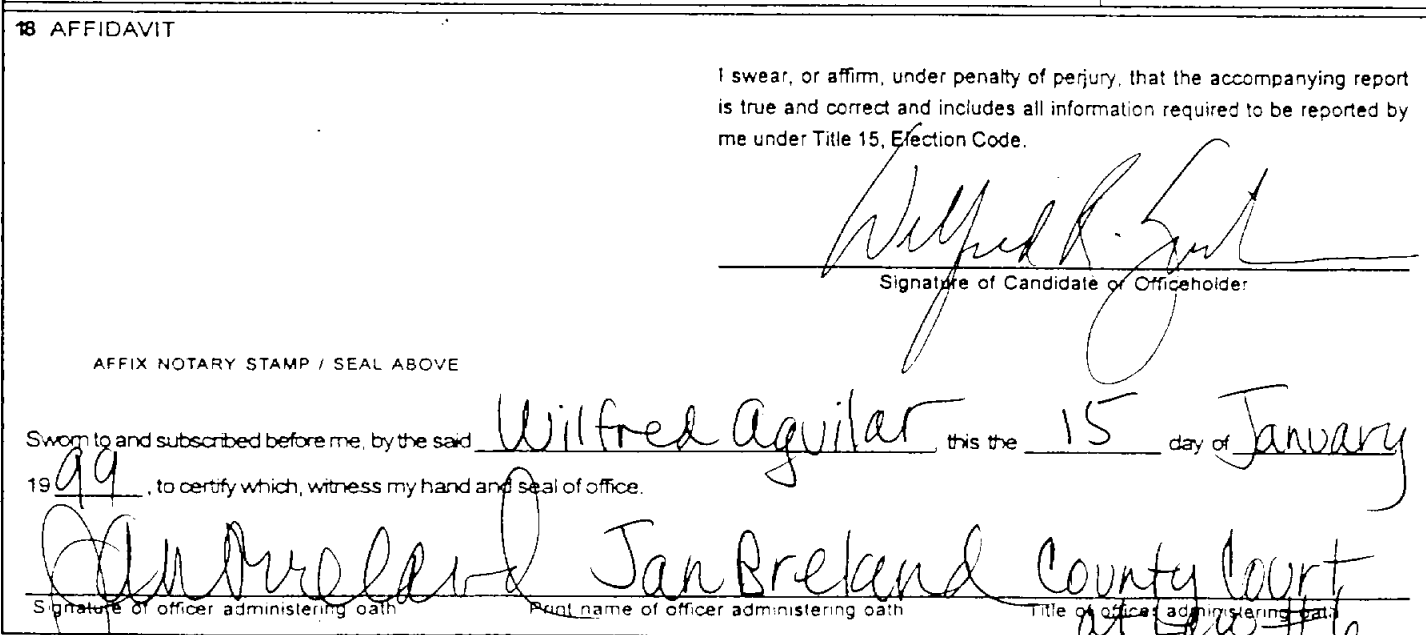 18 AFFIDAVIT
I swear, or affirm, under penalty of perjury, that the accompanying report
is true and correct and includes all information required to be reported by
me under Title 15, Election Code.
Wilfred R.
Signature of Candidate or Officeholder
AFFIX NOTARY STAMP / SEAL ABOVE
Sworn to and subscribed before me, by the said Wilfred Aguilar this the 15 day of January
1999, to certify which, witness my hand and seal of office.
Jan Breland Jan Breland County Court
Signature of officer administering oath Print name of officer administering oath Title of officer administering oath
at Law #6